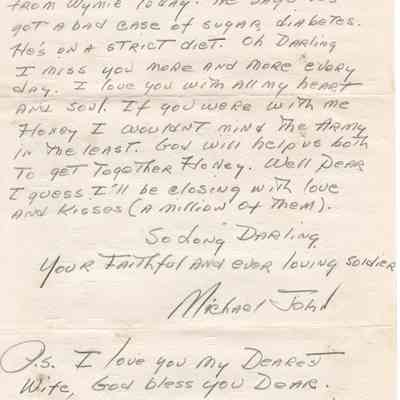 from Wymie today. He says he's
got a bad case of sugar diabetes.
He's on a strict diet. Oh Darling
I miss you more and more every
day. I love you with all my heart
and soul. If you were with me
Honey I wouldn't mind the Army
in the least. God will help us both
to get together Honey. Well Dear
I guess I'll be closing with love
and kisses (a million of them).
So long Darling
Your Faithful and ever loving soldier
Michael John
P.s. I love you my Dearest
Wife, God bless you Dear.